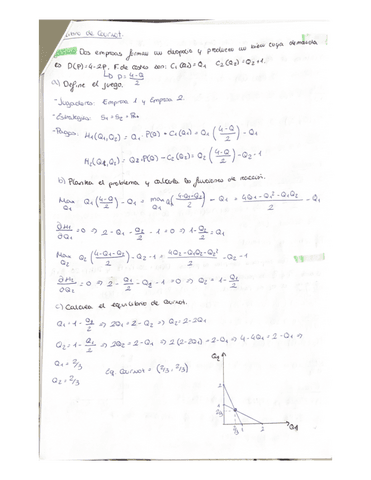 libro de Cournot.
Dos empresas forman un duopolio y producen un bien cuya demanda
es D(P)=4-2P. F. de costes son: C₁(Q₁)=Q₁ C₂(Q₂)=Q₂+1.
↳ P = (4-Q)/2
a) Define el juego.
- Jugadores: Empresa 1 y Empresa 2.
- Estrategias: S₁ = S₂ =
- Pagos: Π₁(Q₁,Q₂) = Q₁·P(Q) - C₁(Q₁) = Q₁((4-Q)/2) - Q₁
Π₂(Q₁,Q₂) = Q₂·P(Q) - C₂(Q₂) = Q₂((4-Q)/2) - Q₂ - 1
b) Plantea el problema y calcula las funciones de reacción.
Max Q₁ Q₁((4-Q)/2) - Q₁ = max Q₁ Q₁((4-Q₁-Q₂)/2) - Q₁ = (4Q₁-Q₁²-Q₁Q₂)/2 - Q₁
∂Π₁/∂Q₁ = 0 ⇒ 2 - Q₁ - Q₂/2 - 1 = 0 ⇒ 1 - Q₂/2 = Q₁
Max Q₂ Q₂((4-Q₁-Q₂)/2) - Q₂ - 1 = (4Q₂-Q₁Q₂-Q₂²)/2 - Q₂ - 1
∂Π₂/∂Q₂ = 0 ⇒ 2 - Q₁/2 - Q₂ - 1 = 0 ⇒ Q₂ = 1 - Q₁/2
c) Calcula el equilibrio de Cournot.
Q₁ = 1 - Q₂/2 ⇒ 2Q₁ = 2 - Q₂ ⇒ Q₂ = 2 - 2Q₁
Q₂ = 1 - Q₁/2 ⇒ 2Q₂ = 2 - Q₁ ⇒ 2(2-2Q₁) = 2 - Q₁ ⇒ 4 - 4Q₁ = 2 - Q₁ ⇒
Q₁ = 2/3
Q₂ = 2/3
Eq. Cournot = (2/3, 2/3)
Q₂
2
1
2/3
2/3
1
2
Q₁